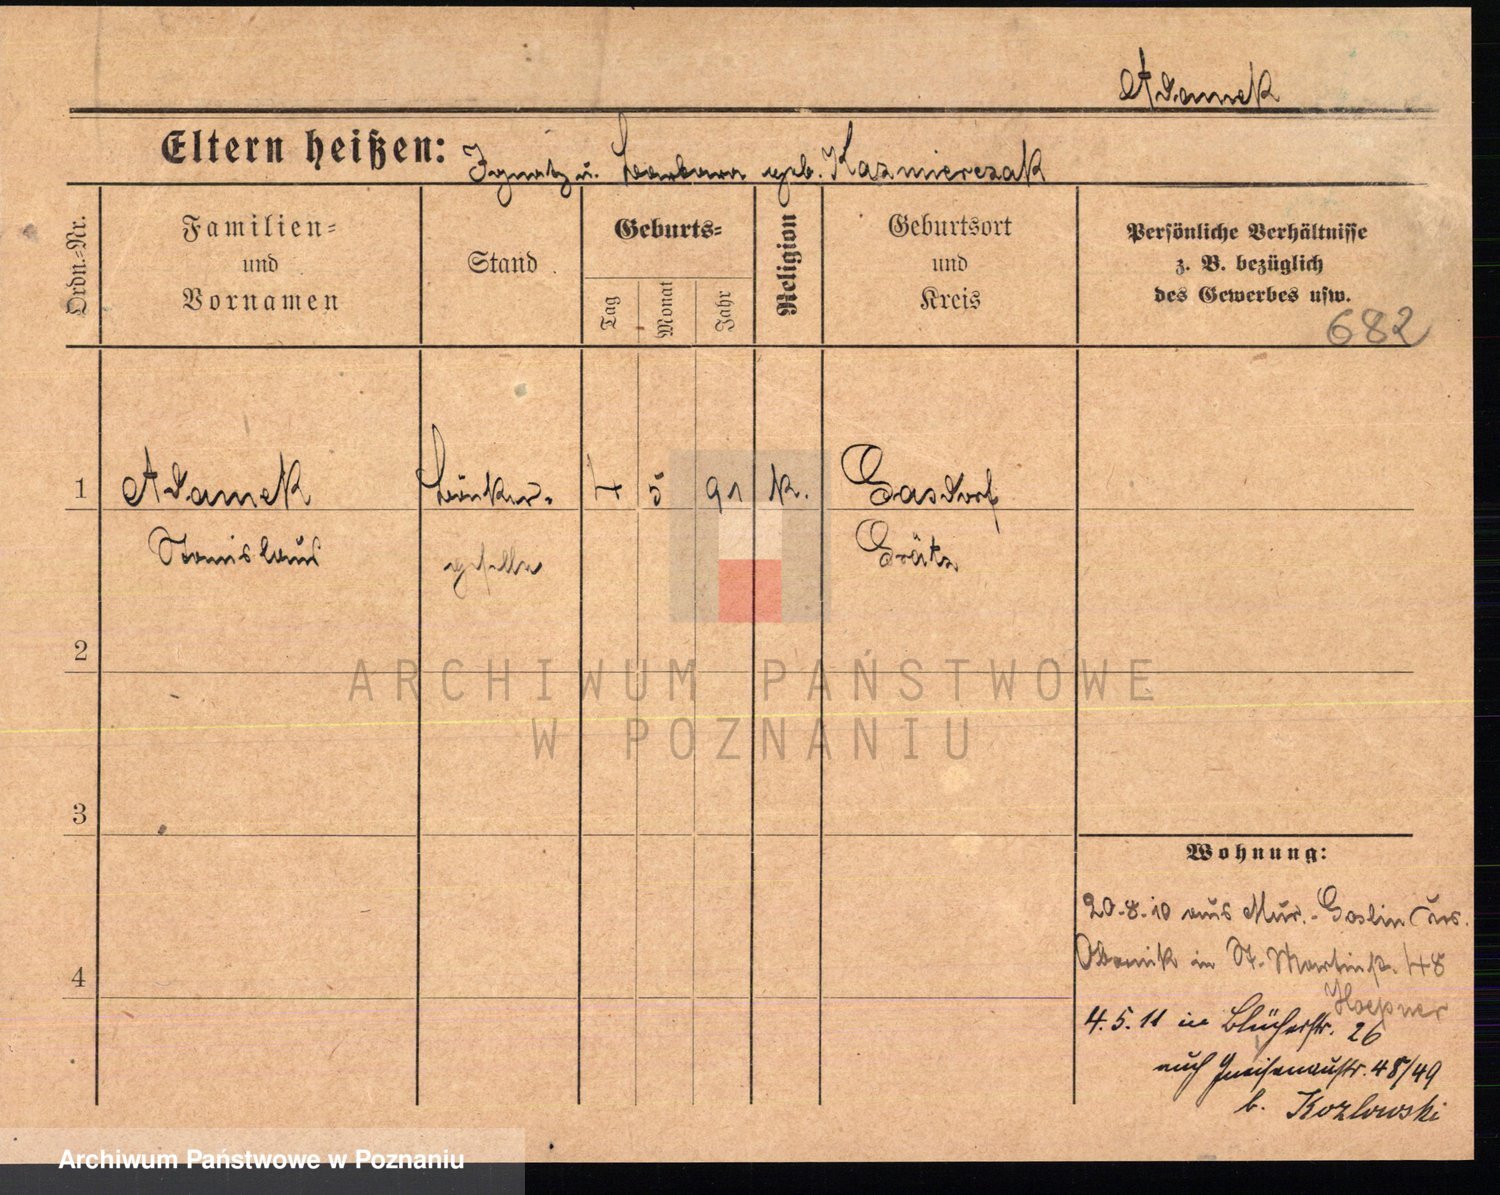 Adamek
Eltern heißen: Ignatz u. Barbara geb. Kazmierczak
Ordn.-Nr.
Familien-
und
Vornamen
Stand
Geburts-
Tag
Monat
Jahr
Religion
Geburtsort
und
Kreis
Persönliche Verhältnisse
z. B. bezüglich
des Gewerbes usw.
682
1 Adamek 4 5 91 k. Gasdorf
Stanislaus geselle Grätz
2
3
4
Wohnung:
20.8.10 aus Mur.-Goslin Krs.
Obornik in St. Martinstr. 48
Hoepner
4.5.11 in Blücherstr. 26
auch Gneisenaustr. 48/49
b. Kozlowski
ARCHIWUM PAŃSTWOWE
W POZNANIU
Archiwum Państwowe w Poznaniu